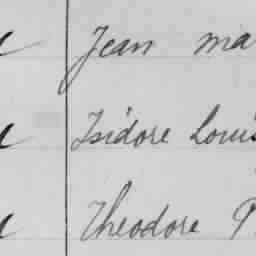 Jean ma
Isidore Louis
Theodore P